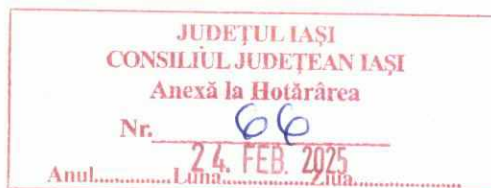 JUDEȚUL IAȘI
CONSILIUL JUDEȚEAN IAȘI
Anexă la Hotărârea
Nr. 66
24. FEB. 2025
Anul..............Luna......................Ziua......................